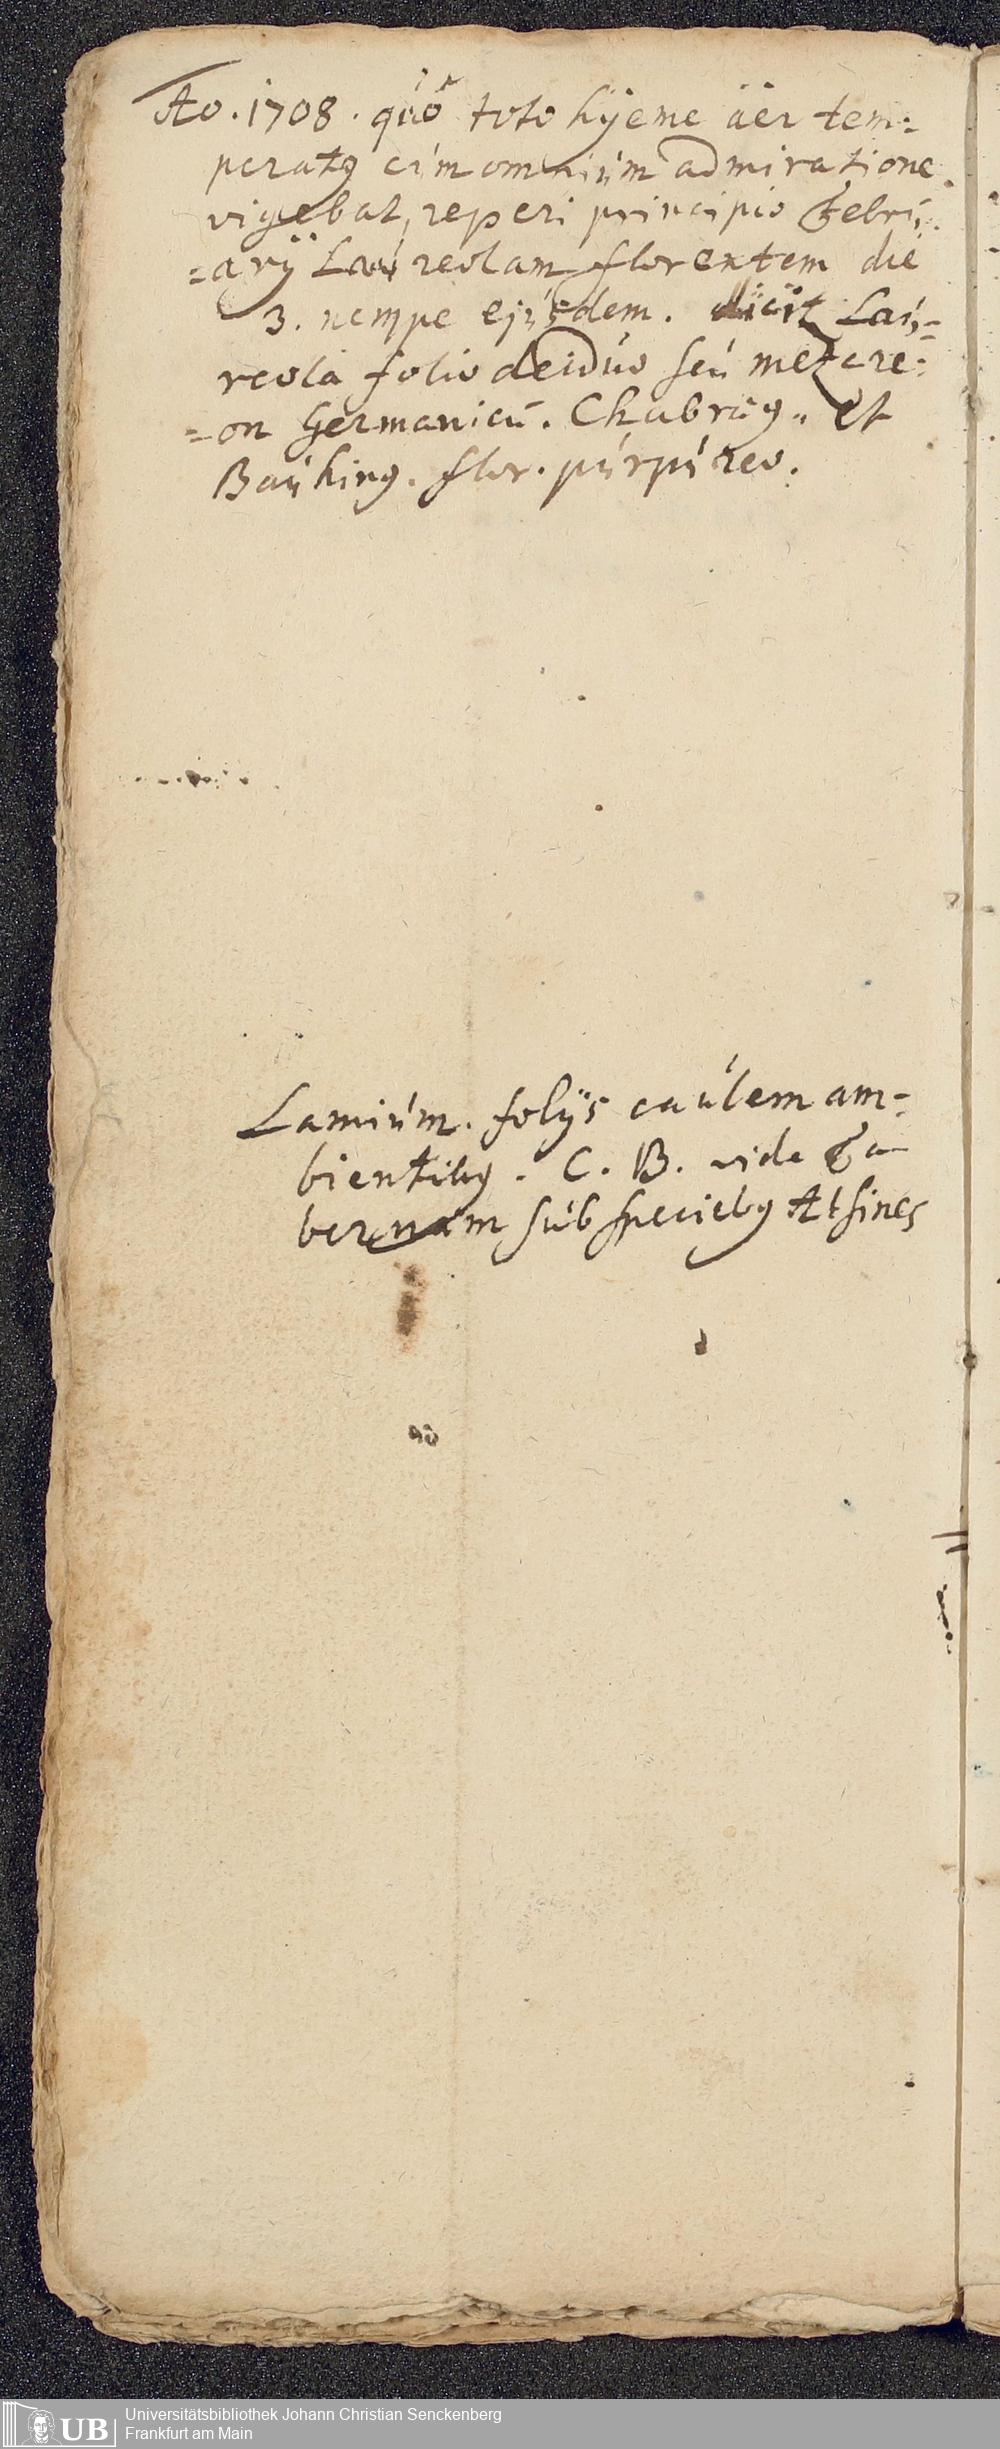 Ao. 1708. quo toto hÿeme äer tem:
peratꝰ cúm omniúm admiratione
vigebat, reperi principio Febrú:
=arÿ Laúreolam florentem die
3. nempe ejúsdem. dicit Laú=
reola folio deiduo seú mezere:
=on Germanicū. Chabræꝰ. et
Baúhinꝰ. flor. púrpúreo.
Lamiúm. folÿs caúlem am=
bientibꝰ. C. B. vide Ta-
bernam súb speciebꝰ Alsines
UB
Universitätsbibliothek Johann Christian Senckenberg
Frankfurt am Main